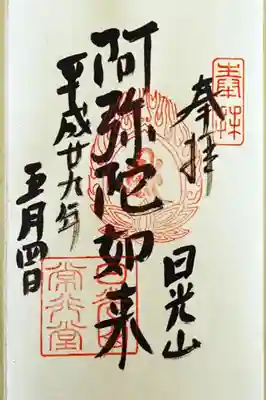 奉拝
奉拝
日光山
阿弥陀如来
常行堂
平成廿九年
五月四日